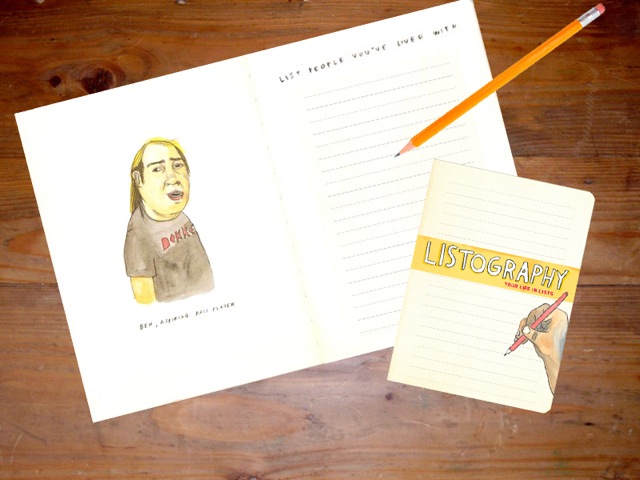 LIST PEOPLE YOU'VE LIVED WITH
DOKKE
BEN, ASPIRING BASS PLAYER
LISTOGRAPHY
YOUR LIFE IN LISTS